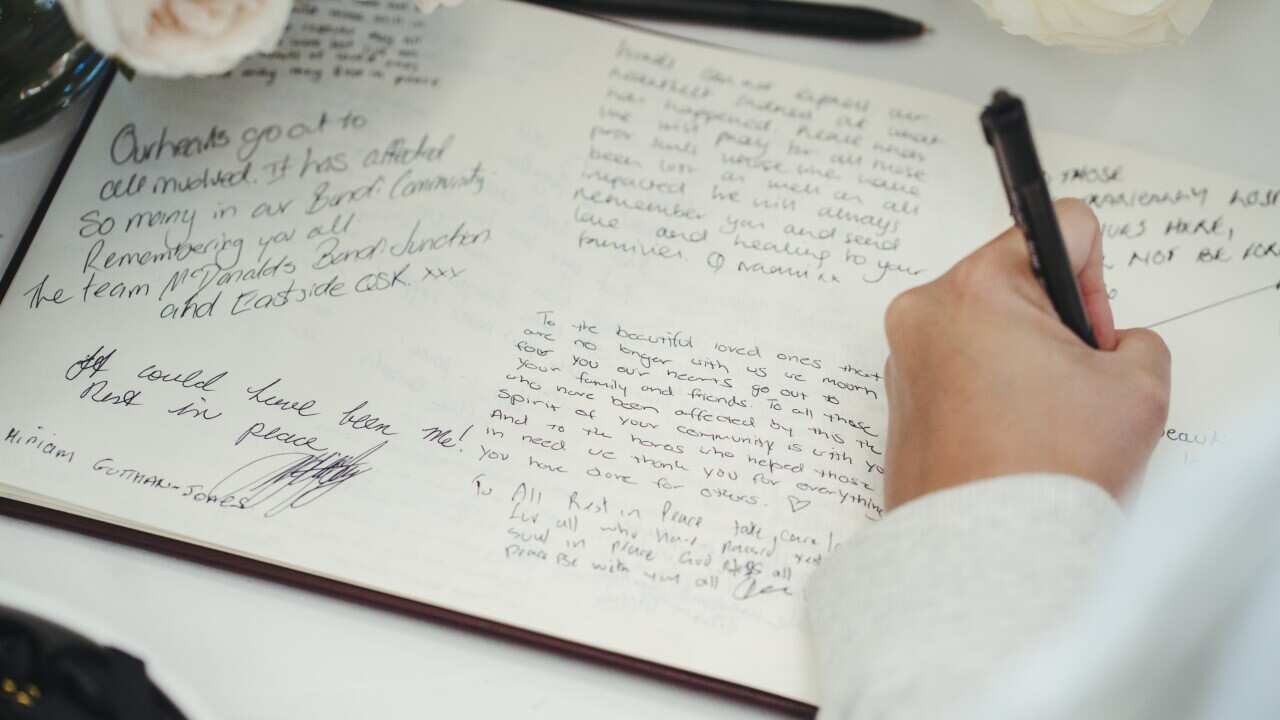 Our hearts go out to
all involved. It has affected
So many in our Bondi Community.
Remembering you all
the team McDonalds Bondi Junction
and Eastside QSR. xxx
It could have been me!
Rest in peace
Miriam Guttman-Jones
Words can not express our
heartfelt at what
has happened. Please know
we will pray for all those
poor souls whose lives have
been lost as well as all
impacted. We will always
remember you and send
love and healing to your
families. Naomi xx
To the beautiful loved ones that
are no longer with us we mourn
for you our hearts go out to
your family and friends. To all those
who have been affected by this the
spirit of your community is with yo
And to the heros who helped those
in need we thank you for everything
you have done for others. ♡
To All Rest in Peace take care
For all who have passed rest
soul in peace God Bless all
peace Be with you all
THOSE
LOST
LIVES HERE,
NOT BE FOR